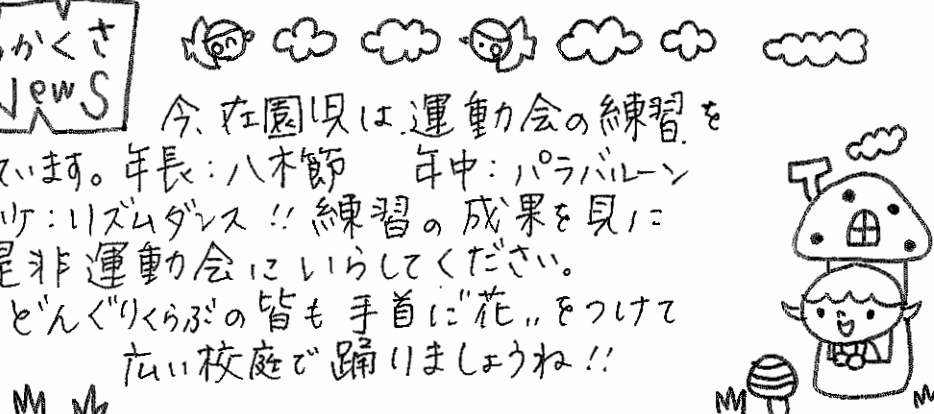 わかくさ
News
今、在園児は、運動会の練習を
ています。年長：八木節　年中：パラバルーン
少：リズムダンス!! 練習の成果を見に
是非運動会にいらしてください。
どんぐりくらぶの皆も手首に"花"をつけて
広い校庭で踊りましょうね!!